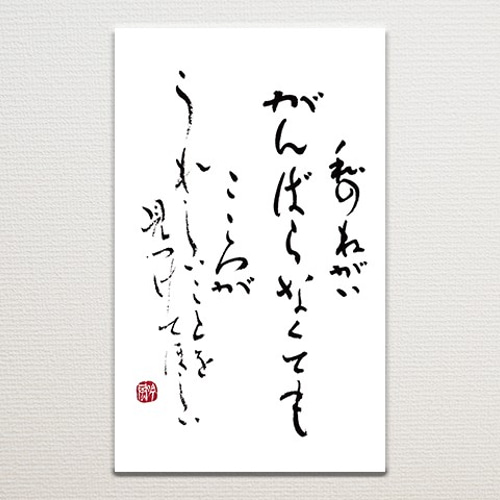 私のねがい
がんばらなくても
こころが
うれしいことを
見つけてほしい